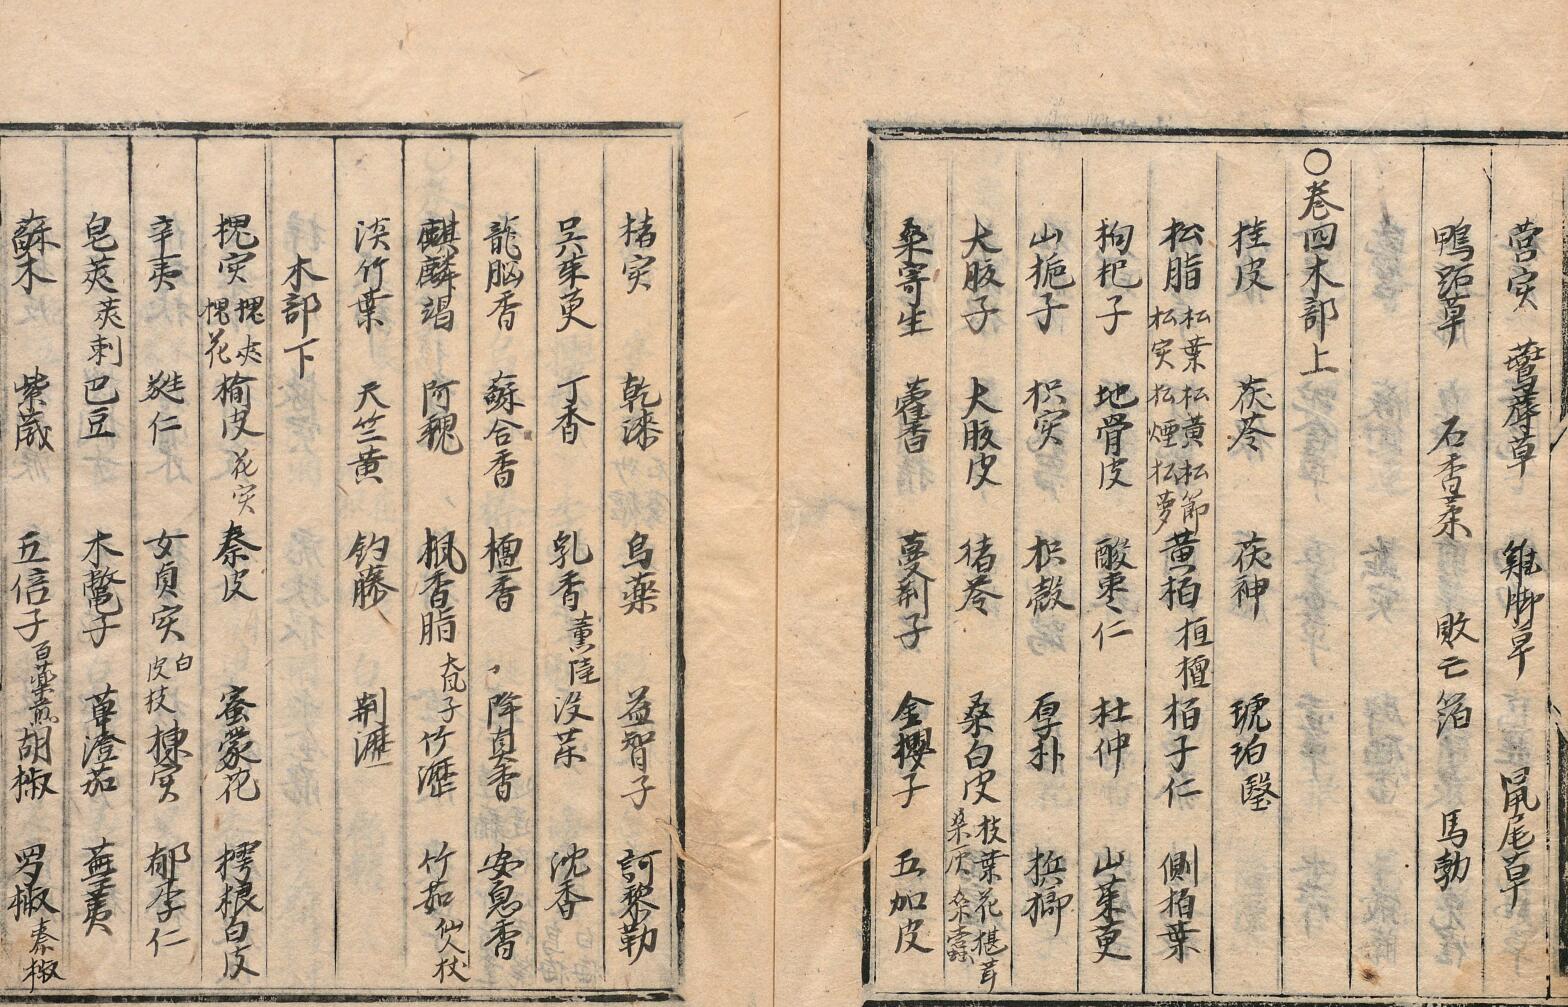 营实 䔧蓐草 雞脚草 鼠尾草
鴨跖草 石香葇 敗亡箔 馬勃
〇卷四木部上
桂皮 茯苓 茯神 琥珀 瑿
松脂 松葉 松実 松黄 松煙 松節 松萝 黄栢 桓檀 栢子仁 側栢葉
枸杞子 地骨皮 酸枣仁 杜仲 山茱萸
山梔子 枳実 枳殼 厚朴 槟榔
大腹子 大腹皮 猪苓 桑白皮 枝葉花椹茸 桑灰桑蠹
桑寄生 藿香 蔓荊子 金櫻子 五加皮
楮実 乾漆 烏藥 益智子 訶黎勒
吴茱萸 丁香 乳香 薫陸 没茱 沈香
龍脳香 蘇合香 檀香 降真香 安息香
麒麟竭 阿魏 楓香脂 大风子 竹瀝 竹茹 仙人杖
淡竹葉 天竺黄 釣藤 荆瀝
木部下
槐实 槐荚 槐花 榆皮 花实 秦皮 蜜蒙花 樗根白皮
辛夷 蕤仁 女貞实 白皮枝 楝实 郁李仁
皂荚 荚刺 巴豆 木鼈子 蓽澄茄 蕪荑
蘇木 紫葳 五倍子 百藥煎 胡椒 蜀椒 秦椒